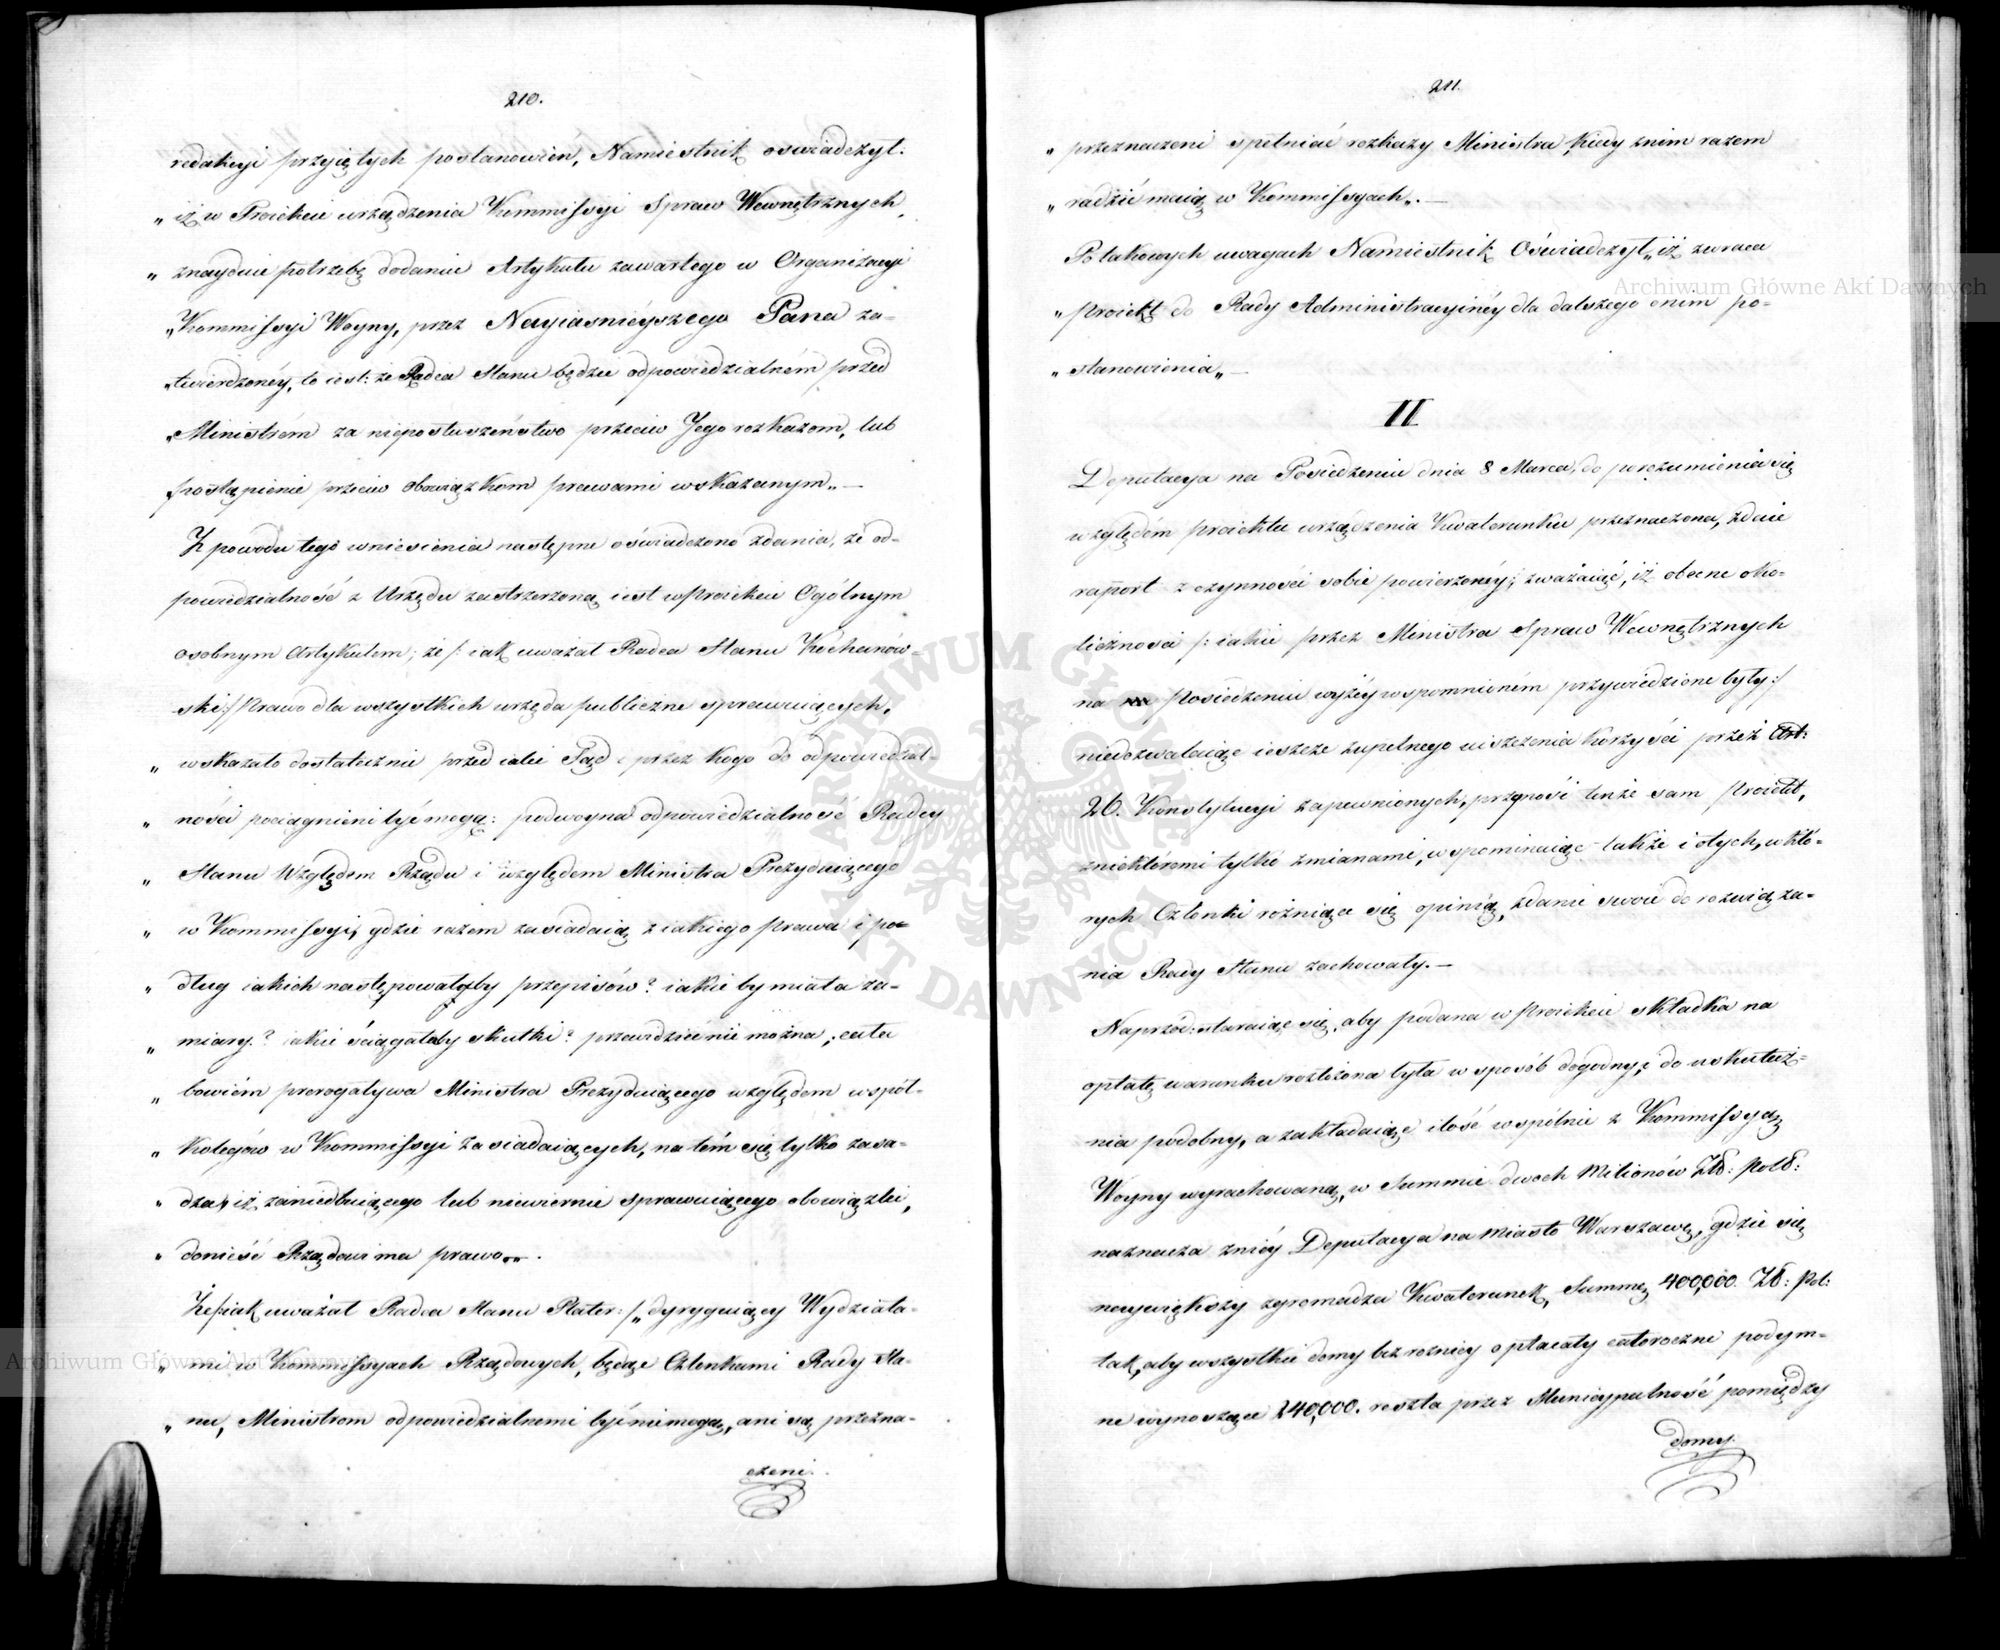 210.
redakcyi przyiętych postanowien, Namiestnik oswiadczył.
„ iż w Proiekcie urządzenia Kommissyi Spraw Wewnętrznych,
„ znayduie potrzebę dodania Artykułu zawartego w Organizacyi
„ Kommissyi Woyny, przez Nayiasnieyszego Pana za-
„ twierdzonéy, to iest: że Radca Stanu będzie odpowiedzialném przed
„ Ministrém za nieposłuszeństwo przeciw Jego rozkazom, lub
postąpienie przeciw obowiązkom prawami wskazanym„. —
Z powodu tego wniesienia następne oświadczono zdania, że od-
powiedzialność z Urzędu zastrzeżoną iest w Proiekcie Ogólnym
osobnym Artykułem; że /: iak uważał Radca Stanu Kochanów-
ski :/ Prawo dla wszystkich urzęda publiczne sprawuiących,
„ wskazało dostatecznie przed iakie Sąd i przez kogo do odpowiedzial-
„ ności pociągnieni być mogą: podwoyna odpowiedzialność Radcy
„ Stanu Względem Rządu i względem Ministra Prezyduiącego
„ w Kommissyi, gdzie razem zasiadaią z iakiego prawa i po-
„ dług iakich następowałaby przepisów? iakie by miała za-
„ miary? iakie ściągałaby skutki? przewidzieć nie można; cała
„ bowiém prerogatywa Ministra Prezyduiącego względem wspól-
„ Kolegów w Kommissyi zasiadaiących, na tém się tylko zasa-
„ dza, iż zaniedbuiącego lub niewiernie sprawuiącego obowiązki,
„ donieść Rządowi ma prawo„.
Że /: iak uważał Radca Stanu Plater :/ „ dyryguiący Wydziała-
„ mi w Kommissyach Rządowych, będąc Członkami Rady Sta-
„ nu, Ministrom odpowiedzialnemi być niemogą, ani są przezna-
czeni.
211.
„ przeznaczeni spełniać rozkazy Ministra kiedy znim razem
„ radzić maią w Kommissyach„. —
Po takowych uwagach Namiestnik Oświadczył „ iż zwraca
„ Proiekt do Rady Administracyinéy dla dalszego onim po-
„ stanowienia„ —
II
Deputacya na Posiedzeniu dnia 8 Marca, do porozumienia się
względém proiektu urządzenia Kwaterunku przeznaczona, zdaie
rapport z czynności sobie powierzonéy; zważaiąc, iż obecne oko-
liczności /: iakie przez Ministra Spraw Wewnętrznych
na posiedzeniu wyżéy wspomnioném przywiedzione były :/
niedozwalaiąc ieszcze zupełnego uiszczenia korzyści przez Art:
26. Konstytucyi zapewnionych, przynosi tenże sam Proiekt,
zniektóremi tylko zmianami, wspominaiąc także i o tych, w któ-
rych Członki rożniące się opinią, zdanie swoie do rozwiąza-
nia Rady Stanu zachowały. —
Naprzód: staraiąc się, aby podana w Proiekcie składka na
opłatę warunku rozłożona była w sposób dogodny, i do uskutecz-
nia podobny, a zakładaiąc ilość wspólnie z Kommissyą
Woyny wyrachowaną, w Summie dwoch Milionów Zł: pol:
naznacza zniéy Deputacya na Miasto Warszawę, gdzie się
naywiększy zgromadza Kwaterunek, Summę 400,000 Zł: Pol:
tak, aby wszystkie domy bez roznicy opłacały całoroczne podym-
ne wynoszące 240,000. reszta przez Municypalność pomiędzy
domy.
Archiwum Główne Akt Dawnych
Archiwum Główne Akt
ARCHIWUM GŁÓWNE AKT DAWNYCH